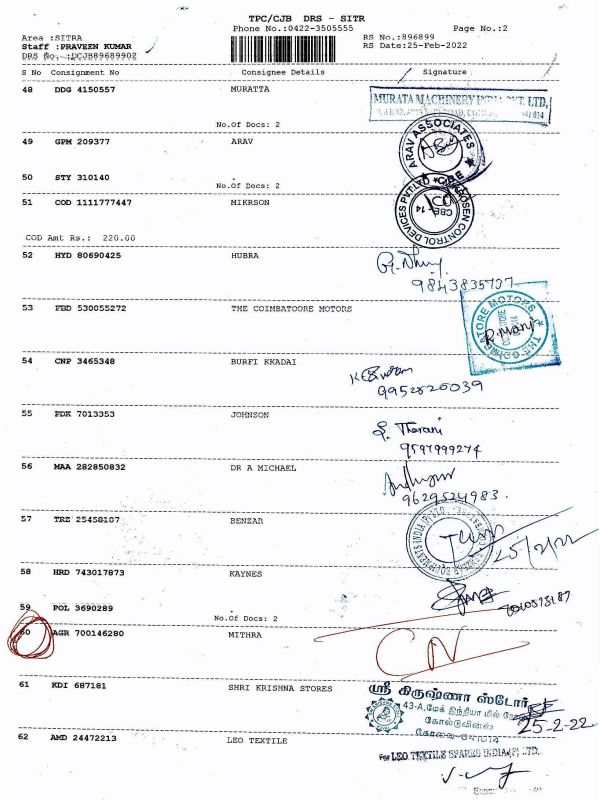 TPC/CJB DRS - SITR
Phone No.:0422-3505555
Page No.:2
Area :SITRA
RS No.:896899
Staff :PRAVEEN KUMAR
RS Date:25-Feb-2022
DRS No. :DCJB89689902
S No Consignment No Consignee Details Signature
48 DDG 4150557 MURATTA
MURATA MACHINERY INDIA PVT. LTD,
No.Of Docs: 2
49 GPM 209377 ARAV
ARAV ASSOCIATES
CBE
50 STY 310140
No.Of Docs: 2
51 COD 1111777447 MIKRSON
CONTROL DEVICES PVT LTD
CBE-14
COD Amt Rs.: 220.00
52 HYD 80690425 HUBRA
9843835737
53 FBD 530055272 THE COIMBATOORE MOTORS
R.Mani
54 CNP 3465348 BURFI KKADAI
9952820039
55 PDK 7013353 JOHNSON
S. Tharani
9597999274
56 MAA 282850832 DR A MICHAEL
9629524983.
57 TRZ 25458107 BENZAR
25/2/22
58 HRD 743017873 KAYNES
59 POL 3690289
No.Of Docs: 2
60 AGR 700146280 MITHRA
CN
61 KDI 687181 SHRI KRISHNA STORES
ஸ்ரீ கிருஷ்ணா ஸ்டோர்
43-A, மேக் இந்தியா மில் ரோடு
கோல்டுவின்ஸ்
கோவை-641014
25-2-22
62 AMD 24472213 LEO TEXTILE
For LEO TEXTILE SPARES INDIA(P) LTD.